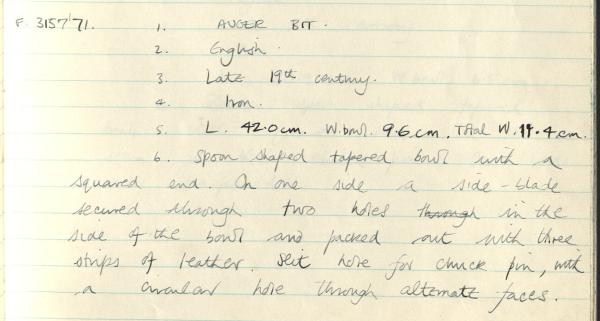 F. 3157/71. 1. AUGER BIT.
2. English.
3. Late 19th century.
4. Iron.
5. L. 42.0cm. W.bowl. 9.6cm. Total W. 11.4cm.
6. Spoon shaped tapered bowl with a
squared end. On one side a side-blade
secured through two holes through in the
side of the bowl and packed out with three
strips of leather. Slit hole for chuck pin, with
a circular hole through alternate faces.